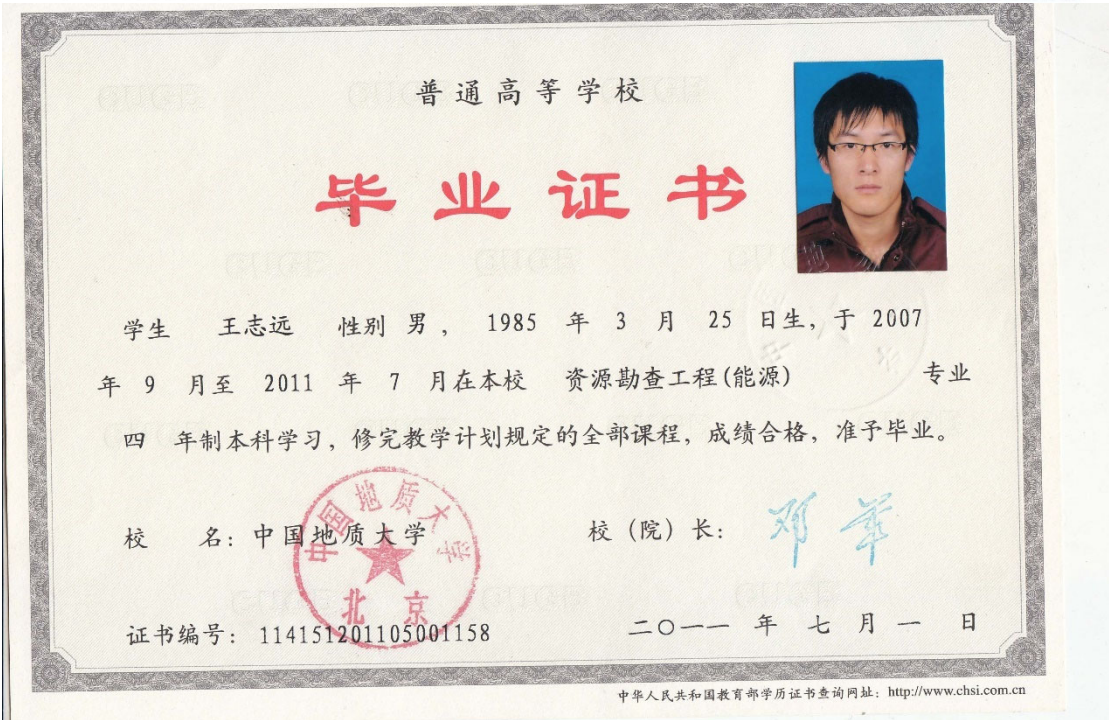 普通高等学校
毕业证书
学生 王志远 性别 男， 1985 年 3 月 25 日生，于 2007
年 9 月至 2011 年 7 月在本校 资源勘查工程(能源) 专业
四 年制本科学习，修完教学计划规定的全部课程，成绩合格，准予毕业。
校 名：中国地质大学
校（院）长：
中国地质大学
北京
证书编号： 114151201105001158
二〇一一 年 七 月 一 日
中华人民共和国教育部学历证书查询网址：http://www.chsi.com.cn